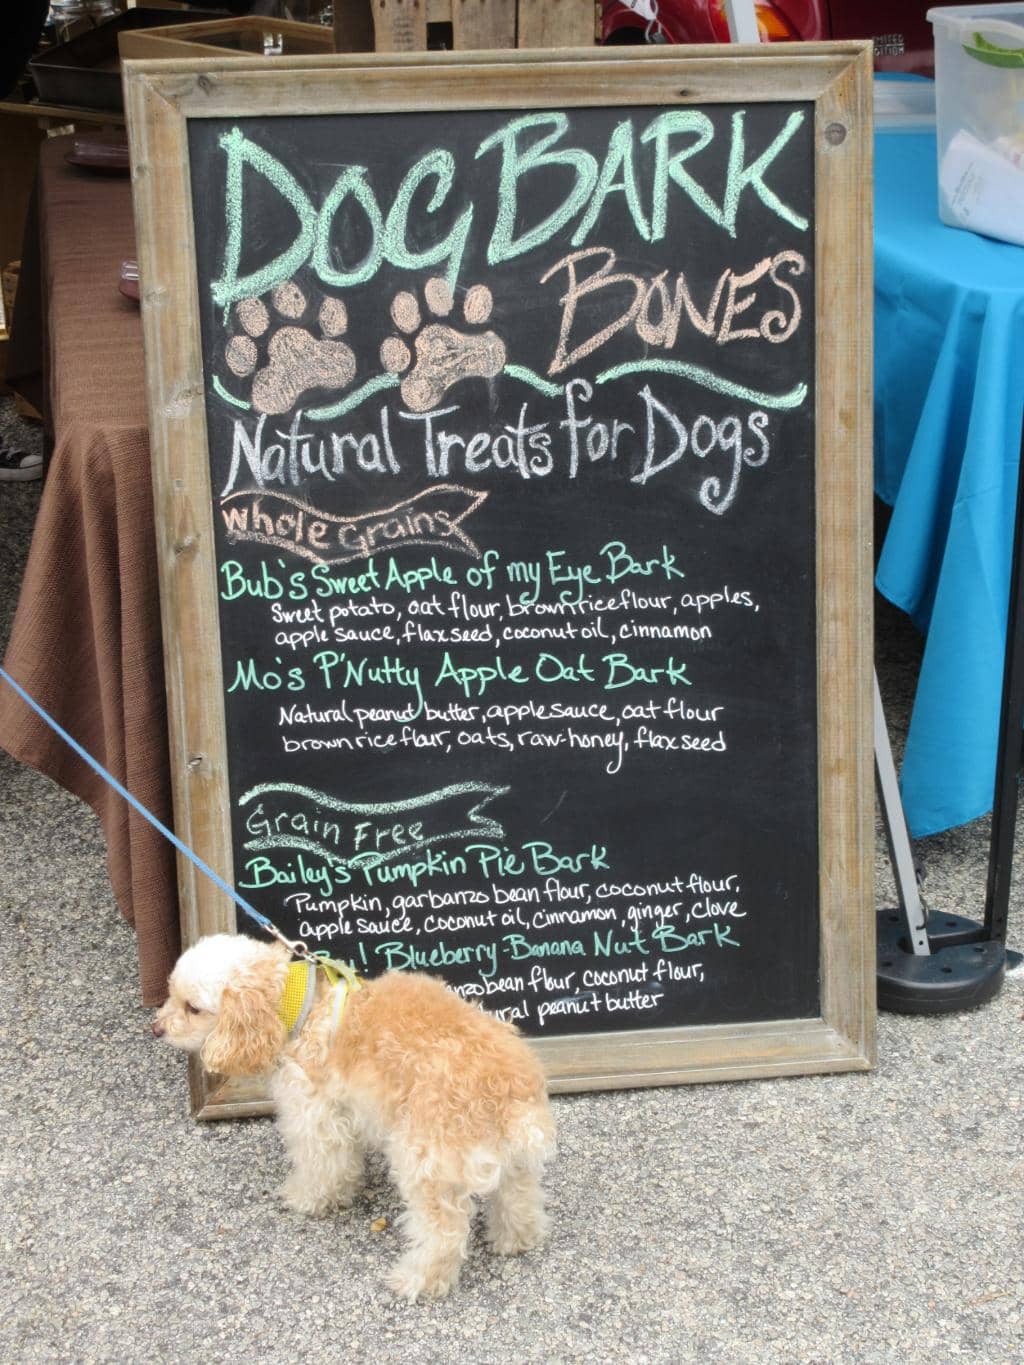 DOG BARK
BONES
Natural Treats for Dogs
Whole Grains
Bub's Sweet Apple of my Eye Bark
Sweet potato, oat flour, brown rice flour, apples,
apple sauce, flaxseed, coconut oil, cinnamon
Mo's P'Nutty Apple Oat Bark
Natural peanut butter, applesauce, oat flour
brown rice flour, oats, raw-honey, flaxseed
Grain Free
Bailey's Pumpkin Pie Bark
Pumpkin, garbanzo bean flour, coconut flour,
apple sauce, coconut oil, cinnamon, ginger, clove
Blueberry-Banana Nut Bark
bean flour, coconut flour,
peanut butter